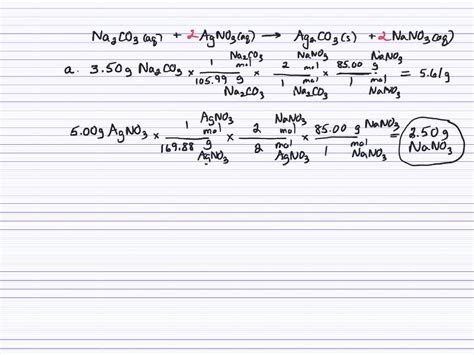 Na2CO3(aq) + 2AgNO3(aq) → Ag2CO3(s) + 2NaNO3(aq)
a. 3.50g Na2CO3 × 1 mol Na2CO3 / 105.99 g Na2CO3 × 2 mol NaNO3 / 1 mol Na2CO3 × 85.00 g NaNO3 / 1 mol NaNO3 = 5.61g
5.00g AgNO3 × 1 mol AgNO3 / 169.88 g AgNO3 × 2 mol NaNO3 / 2 mol AgNO3 × 85.00 g NaNO3 / 1 mol NaNO3 = 2.50g NaNO3